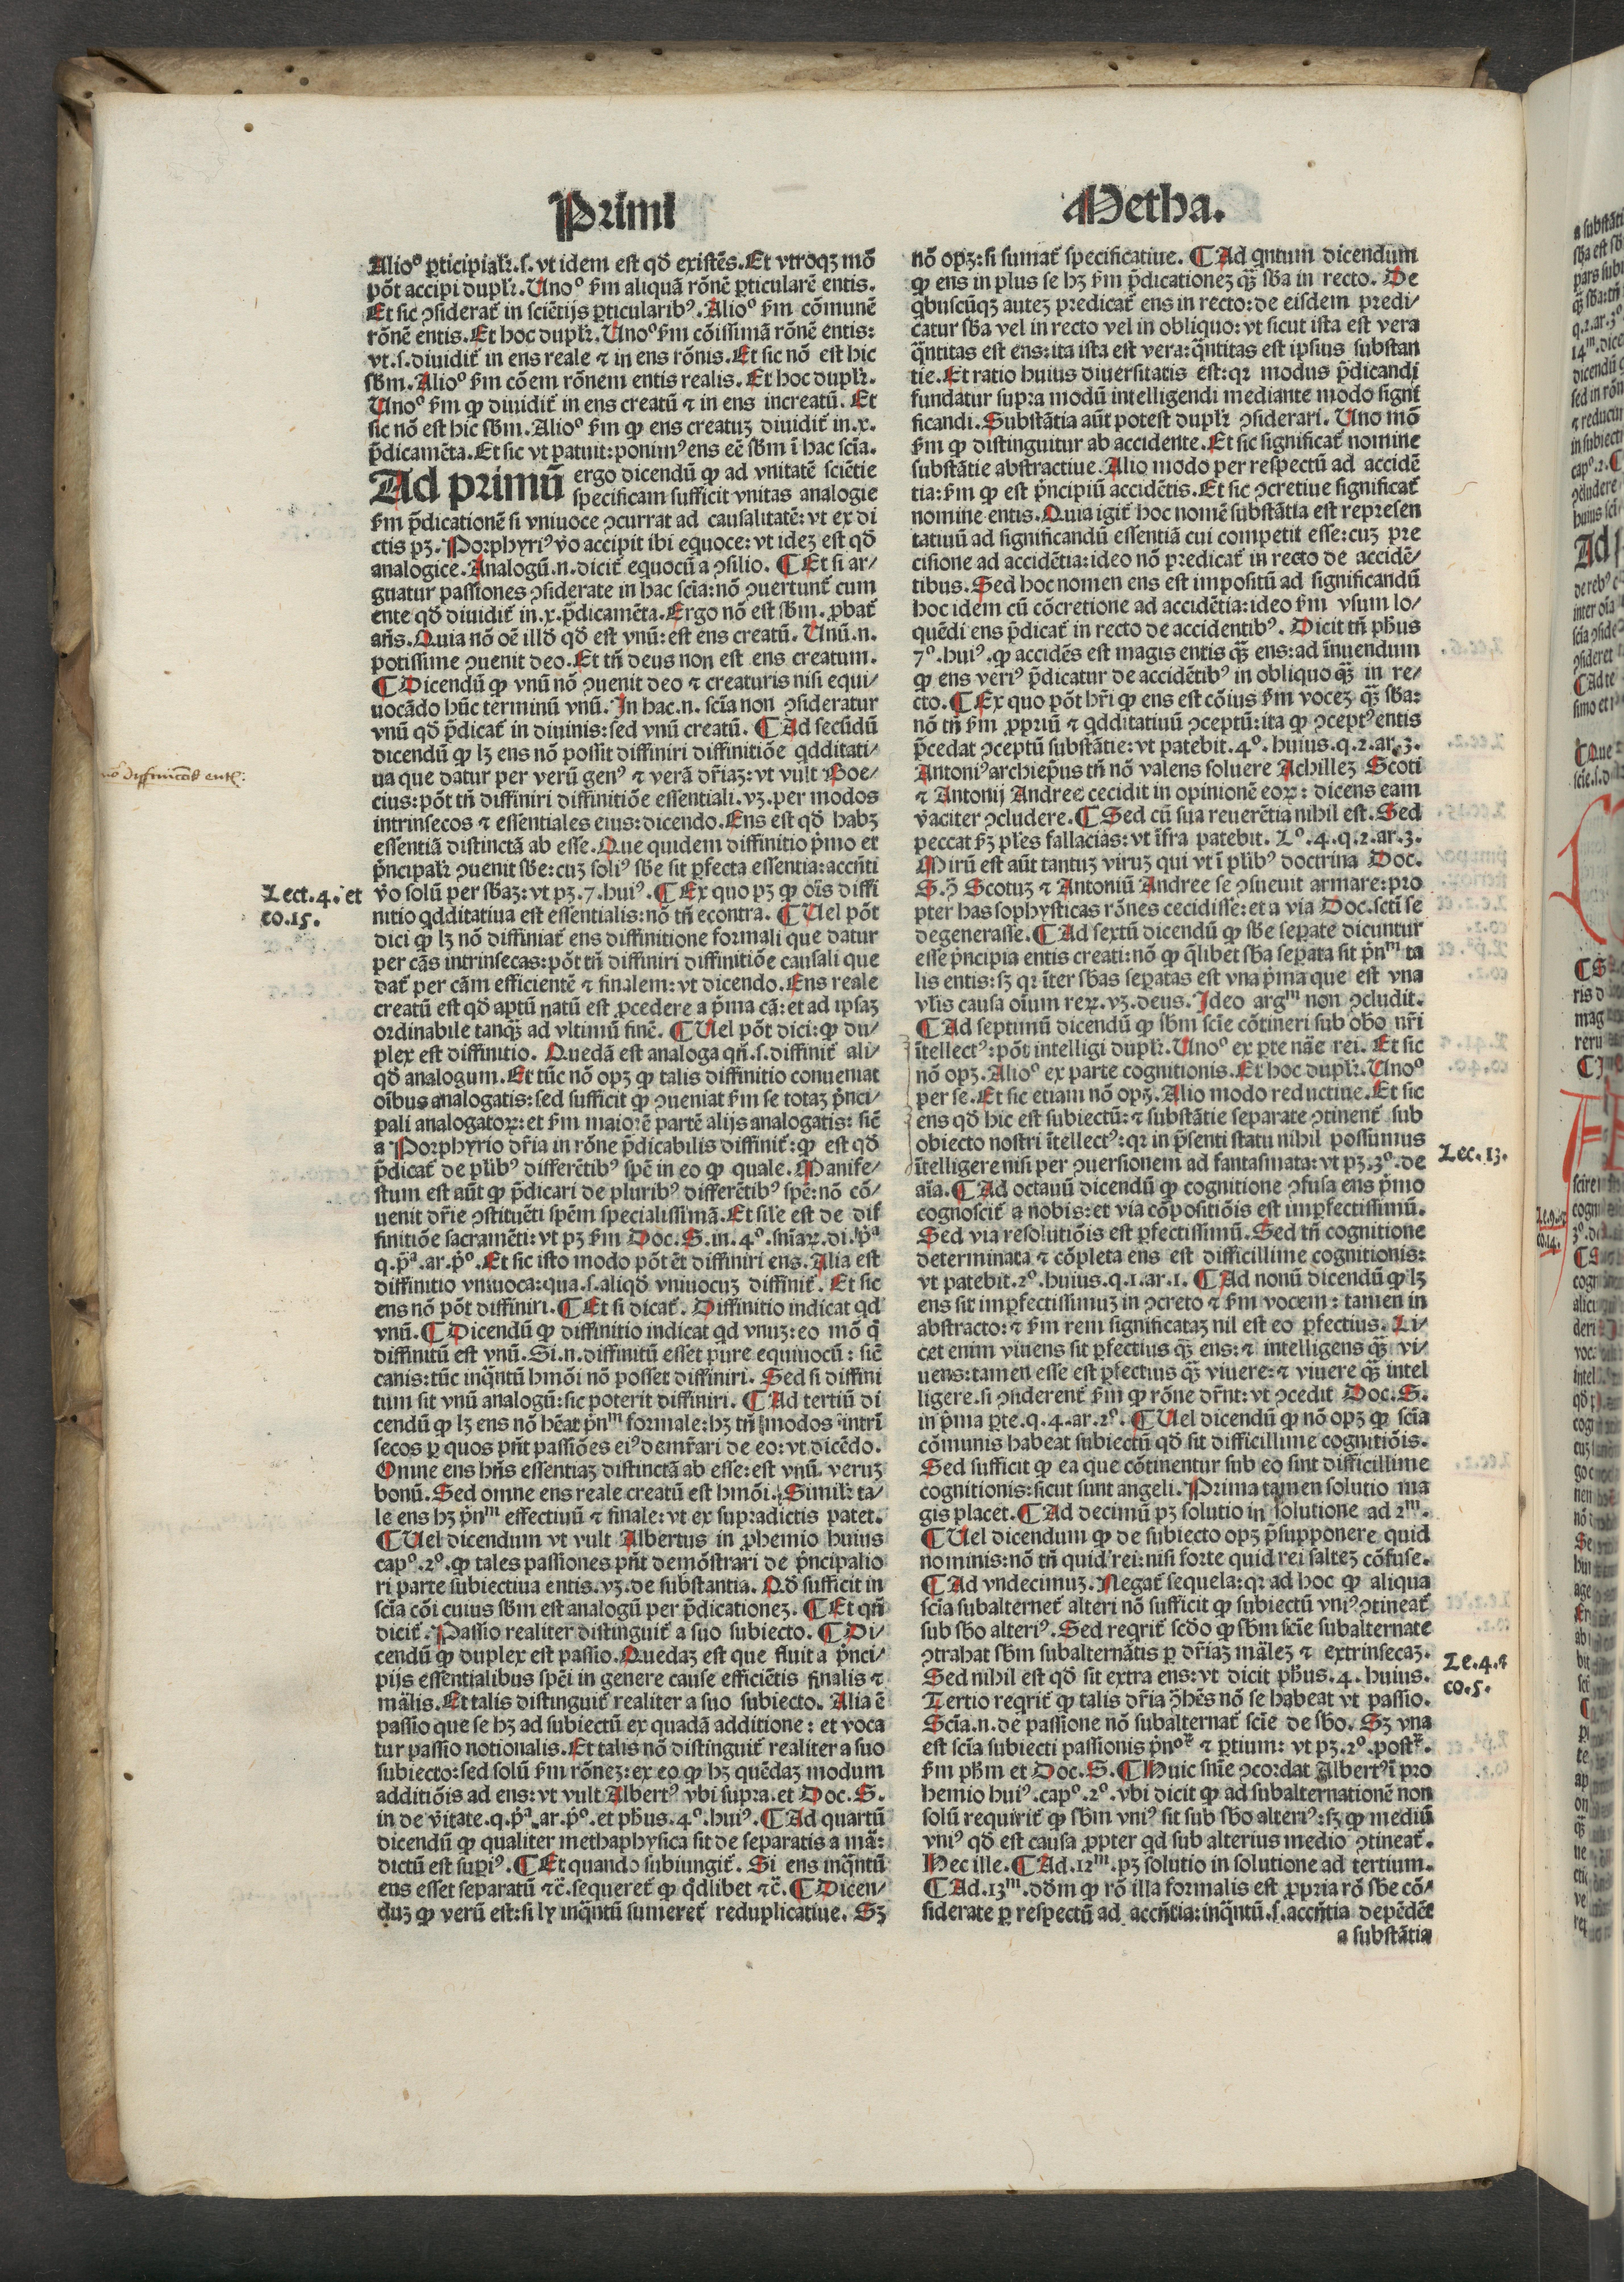 Primi
Metha.
Alio⁰ ꝑticipialr̃.ſ.vt idem eſt qd̃ exiſtẽs.Et vtroqꝫ mõ
põt accipi duplr̃.Uno⁰ ẜm aliquã rõnẽ ꝑticularẽ entis.
Et ſic ꝯſiderat᷑ in ſciẽtijs ꝑticularibꝰ.Alio⁰ ẜm cõmunẽ
rõnẽ entis.Et hoc duplr̃.Uno⁰ ẜm cõiſſimã rõnẽ entis:
vt.ſ.diuidit᷑ in ens reale ⁊ in ens rõnis.Et ſic nõ eſt hic
ſbm̃.Alio⁰ ẜm cõem rõnem entis realis.Et hoc duplr̃.
Uno⁰ ẜm ꝙ diuidit᷑ in ens creatũ ⁊ in ens increatũ. Et
ſic nõ eſt hic ſbm̃.Alio⁰ ẜm ꝙ ens creatuꝫ diuidit᷑ in.x.
p̃dicamẽta.Et ſic vt patuit:ponimꝰ ens eẽ ſbm̃ ĩ hac ſcĩa.
Ad primũ ergo dicendũ ꝙ ad vnitatẽ ſciẽtie
ſpecificam ſufficit vnitas analogie
ẜm p̃dicationẽ ſi vniuoce ꝯcurrat ad cauſalitatẽ: vt ex di
ctis pꝫ.Porphyriꝰ v̾o accipit ibi equoce: vt ideꝫ eſt qd̃
analogice.Analogũ.n.dicit᷑ equocũ a ꝯſilio. ¶ Et ſi ar⸗
guatur paſſiones ꝯſiderate in hac ſcĩa:nõ ꝯuertunt᷑ cum
ente qd̃ diuidit᷑ in.x.p̃dicamẽta.Ergo nõ eſt ſbm̃.ꝓbat᷑
añs.Quia nõ oẽ illd̃ qd̃ eſt vnũ: eſt ens creatũ. Unũ.n.
potiſſime ꝯuenit deo.Et tñ deus non eſt ens creatum.
¶ Dicendũ ꝙ vnũ nõ ꝯuenit deo ⁊ creaturis niſi equi⸗
uocãdo hũc terminũ vnũ.In hac.n.ſcĩa non ꝯſideratur
vnũ qd̃ p̃dicat᷑ in diuinis:ſed vnũ creatũ. ¶ Ad ſecũdũ
dicendũ ꝙ lꝫ ens nõ poſſit diffiniri diffinitiõe qdditati⸗
ua que datur per verũ genꝰ ⁊ verã dr̃iaꝫ: vt vult Boe⸗
cius:põt tñ diffiniri diffinitiõe eſſentiali.vꝫ.per modos
intrinſecos ⁊ eſſentiales eius:dicendo.Ens eſt qd̃ habꝫ
eſſentiã diſtinctã ab eſſe.Que quidem diffinitio p̃mo et
p̃ncipalr̃ ꝯuenit ſbe:cuꝫ ſoliꝰ ſbe ſit ꝑfecta eſſentia:accñti
v̾o ſolũ per ſbaꝫ:vt pꝫ.7.huiꝰ.¶ Ex quo pꝫ ꝙ oĩs diffi
nitio qdditatiua eſt eſſentialis:nõ tñ econtra. ¶ Uel põt
dici ꝙ lꝫ nõ diffiniat᷑ ens diffinitione formali que datur
per cãs intrinſecas:põt tñ diffiniri diffinitiõe cauſali que
dat᷑ per cãm efficientẽ ⁊ finalem:vt dicendo.Ens reale
creatũ eſt qd̃ aptũ natũ eſt ꝓcedere a p̃ma cã:et ad ipſaꝫ
ordinabile tanq̃ꝫ ad vltimũ finẽ. ¶ Uel põt dici:ꝙ du⸗
plex eſt diffinitio. Quedã eſt analoga qñ.ſ.diffinit᷑ ali⸗
qd̃ analogum.Et tũc nõ opꝫ ꝙ talis diffinitio conueniat
oĩbus analogatis:ſed ſufficit ꝙ ꝯueniat ẜm ſe totaꝫ p̃nci⸗
pali analogatoꝝ:et ẜm maiorẽ partẽ alijs analogatis: ſicẽ
a Porphyrio dr̃ia in rõne p̃dicabilis diffinit᷑:ꝙ eſt qd̃
p̃dicat᷑ de pl̃ibꝰ differẽtibꝰ ſpẽ in eo ꝙ quale.Manife⸗
ſtum eſt aũt ꝙ p̃dicari de pluribꝰ differẽtibꝰ ſpẽ:nõ cõ⸗
uenit dr̃ie ꝯſtituẽti ſpẽm ſpecialiſſimã.Et ſil̃e eſt de dif
finitiõe ſacramẽti: vt pꝫ ẜm Doc.S.in.4⁰.ſnĩaꝝ.di.p̃ª
q.p̃ª.ar.p̃⁰.Et ſic iſto modo põt ẽt diffiniri ens.Alia eſt
diffinitio vniuoca:qua.ſ.aliqd̃ vniuocuꝫ diffinit᷑. Et ſic
ens nõ põt diffiniri.¶ Et ſi dicat᷑. Diffinitio indicat qd
vnũ.¶ Dicendũ ꝙ diffinitio indicat qd vnuꝫ:eo mõ q̃
diffinitũ eſt vnũ.Si.n.diffinitũ eſſet pure equiuocũ: ſicẽ
canis:tũc inq̃ntũ hmõi nõ poſſet diffiniri. Sed ſi diffini
tum ſit vnũ analogũ:ſic poterit diffiniri. ¶ Ad tertiũ di
cendũ ꝙ lꝫ ens nõ hẽat p̃nᵐ formale:hꝫ tñ modos intrĩ
ſecos ꝑ quos pñt paſſiões eiꝰ demr̃ari de eo:vt dicẽdo.
Omne ens hñs eſſentiaꝫ diſtinctã ab eſſe:eſt vnũ. veruꝫ
bonũ.Sed omne ens reale creatũ eſt hmõi.Similr̃ ta⸗
le ens hꝫ p̃nᵐ effectiuũ ⁊ finale: vt ex ſupradictis patet.
¶ Uel dicendum vt vult Albertus in ꝓhemio huius
cap⁰.2⁰.ꝙ tales paſſiones pñt demõſtrari de p̃ncipalio
ri parte ſubiectiua entis.vꝫ.de ſubſtantia. Qd̃ ſufficit in
ſcĩa cõi cuius ſbm̃ eſt analogũ per p̃dicationeꝫ. ¶ Et qñ
dicit᷑.Paſſio realiter diſtinguit᷑ a ſuo ſubiecto. ¶ Di⸗
cendũ ꝙ duplex eſt paſſio.Quedaꝫ eſt que fluit a p̃nci⸗
pijs eſſentialibus ſpẽi in genere cauſe efficiẽtis finalis ⁊
mãlis. Et talis diſtinguit᷑ realiter a ſuo ſubiecto. Alia ẽ
paſſio que ſe hꝫ ad ſubiectũ ex quadã additione: et voca
tur paſſio notionalis.Et talis nõ diſtinguit᷑ realiter a ſuo
ſubiecto:ſed ſolũ ẜm rõneꝫ:ex eo ꝙ hꝫ quẽdaꝫ modum
additiõis ad ens: vt vult Albertꝰ vbi ſupra.et Doc.S.
in de v̾itate.q.p̃ª.ar.p̃⁰.et phũs.4⁰.huiꝰ.¶ Ad quartũ
dicendũ ꝙ qualiter methaphyſica ſit de ſeparatis a mã:
dictũ eſt ſupiꝰ.¶ Et quando ſubiungit᷑. Si ens inq̃ntũ
ens eſſet ſeparatũ ⁊c̃.ſequeret᷑ ꝙ q̃dlibet ⁊c̃.¶ Dicen⸗
duꝫ ꝙ verũ eſt:ſi ly inq̃ntũ ſumeret᷑ reduplicatiue. Sꝫ
nõ diffinitiõis entis:
Lect.4.et
co.15.
nõ opꝫ:ſi ſumat᷑ ſpecificatiue. ¶ Ad qntum dicendum
ꝙ ens in plus ſe hꝫ ẜm p̃dicationeꝫ q̃ꝫ ſba in recto. De
qbuſcũqꝫ auteꝫ predicat᷑ ens in recto:de eiſdem predi⸗
catur ſba vel in recto vel in obliquo:vt ſicut iſta eſt vera
q̃ntitas eſt ens:ita iſta eſt vera:q̃ntitas eſt ipſius ſubſtan
tie.Et ratio huius diuerſitatis eſt:qꝛ modus p̃dicandi
fundatur ſupra modũ intelligendi mediante modo ſigni
ficandi.Subſtãtia aũt poteſt duplr̃ ꝯſiderari. Uno mõ
ẜm ꝙ diſtinguitur ab accidente.Et ſic ſignificat᷑ nomine
ſubſtãtie abſtractiue.Alio modo per reſpectũ ad accidẽ
tia:ẜm ꝙ eſt p̃ncipiũ accidẽtis.Et ſic ꝯcretiue ſignificat᷑
nomine entis.Quia igit᷑ hoc nomẽ ſubſtãtia eſt repreſen
tatiuũ ad ſignificandũ eſſentiã cui competit eſſe:cuꝫ pre
ciſione ad accidẽtia:ideo nõ predicat᷑ in recto de accidẽ⸗
tibus.Sed hoc nomen ens eſt impoſitũ ad ſignificandũ
hoc idem cũ cõcretione ad accidẽtia:ideo ẜm vſum lo⸗
quẽdi ens p̃dicat᷑ in recto de accidentibꝰ. Dicit tñ phũs
7⁰.huiꝰ.ꝙ accidẽs eſt magis entis q̃ꝫ ens:ad ĩnuendum
ꝙ ens veriꝰ p̃dicatur de accidẽtibꝰ in obliquo q̃ꝫ in re⸗
cto.¶ Ex quo põt hr̃i ꝙ ens eſt cõius ẜm voceꝫ q̃ꝫ ſba:
nõ tñ ẜm ꝓpriũ ⁊ qdditatiuũ ꝯceptũ:ita ꝙ ꝯceptꝰ entis
p̃cedat ꝯceptũ ſubſtãtie: vt patebit.4⁰.huius.q.2.ar.3.
Antoniꝰ archiep̃us tñ nõ valens ſoluere Achilleꝫ Scoti
⁊ Antonij Andree cecidit in opinionẽ eoꝝ: dicens eam
v̾aciter ꝯcludere.¶ Sed cũ ſua reuerẽtia nihil eſt.Sed
peccat ẜꝫ pl̃es fallacias: vt ĩfra patebit. L⁰.4.q.2.ar.3.
Mirũ eſt aũt tantuꝫ viruꝫ qui vt ĩ pl̃ibꝰ doctrina Doc.
S.ꝯ̃ Scotuꝫ ⁊ Antoniũ Andree ſe ꝯſueuit armare:pro
pter has ſophyſticas rõnes cecidiſſe:et a via Doc.ſcti ſe
degeneraſſe.¶ Ad ſextũ dicendũ ꝙ ſbe ſeꝑate dicuntur
eſſe p̃ncipia entis creati:nõ ꝙ q̃libet ſba ſeꝑata ſit p̃nᵐ ta
lis entis:ſꝫ qꝛ ĩter ſbas ſeꝑatas eſt vna p̃ma que eſt vna
vl̃is cauſa oĩum reꝝ.vꝫ.deus.Ideo argᵐ non ꝯcludit.
¶ Ad ſeptimũ dicendũ ꝙ ſbm̃ ſcĩe cõtineri ſub obõ nr̃i
ĩtellectꝰ:põt intelligi duplr̃.Uno⁰ ex ꝑte nãe rei. Et ſic
nõ opꝫ.Alio⁰ ex parte cognitionis.Et hoc duplr̃.Uno⁰
per ſe.Et ſic etiam nõ opꝫ.Alio modo reductiue.Et ſic
ens qd̃ hic eſt ſubiectũ:⁊ ſubſtãtie ſeparate ꝯtinent᷑ ſub
obiecto noſtri ĩtellectꝰ:qꝛ in p̃ſenti ſtatu nihil poſſumus
ĩtelligere niſi per ꝯuerſionem ad fantaſmata:vt pꝫ.3⁰.de
aĩa.¶ Ad octauũ dicendũ ꝙ cognitione ꝯfuſa ens p̃mo
cognoſcit᷑ a nobis:et via cõpoſitiõis eſt imꝑfectiſſimũ.
Sed via reſolutiõis eſt ꝑfectiſſimũ.Sed tñ cognitione
determinata ⁊ cõpleta ens eſt difficillime cognitionis:
vt patebit.2⁰.huius.q.1.ar.1. ¶ Ad nonũ dicendũ ꝙ lꝫ
ens ſit imꝑfectiſſimuꝫ in ꝯcreto ⁊ ẜm vocem: tamen in
abſtracto:⁊ ẜm rem ſignificataꝫ nil eſt eo ꝑfectius. Li⸗
cet enim viuens ſit ꝑfectius q̃ꝫ ens:⁊ intelligens q̃ꝫ vi⸗
uens:tamen eſſe eſt ꝑfectius q̃ꝫ viuere:⁊ viuere q̃ꝫ intel
ligere.ſi ꝯſiderent᷑ ẜm ꝙ rõne dr̃nt:vt ꝯcedit Doc.S.
in p̃ma ꝑte.q.4.ar.2⁰.¶ Uel dicendũ ꝙ nõ opꝫ ꝙ ſcĩa
cõmunis habeat ſubiectũ qd̃ ſit difficillime cognitiõis.
Sed ſufficit ꝙ ea que cõtinentur ſub eo ſint difficillime
cognitionis:ſicut ſunt angeli.Prima tamen ſolutio ma
gis placet.¶ Ad decimũ pꝫ ſolutio in ſolutione ad 2ᵐ.
¶ Uel dicendum ꝙ de ſubiecto opꝫ p̃ſupponere quid
nominis:nõ tñ quid rei:niſi forte quid rei ſalteꝫ cõfuſe.
¶ Ad vndecimuꝫ.Negat᷑ ſequela:qꝛ ad hoc ꝙ aliqua
ſcĩa ſubalternet᷑ alteri nõ ſufficit ꝙ ſubiectũ vniꝰ ꝯtineat᷑
ſub ſbõ alteriꝰ.Sed reqrit᷑ ſcdõ ꝙ ſbm̃ ſcĩe ſubalternate
ꝯtrahat ſbm̃ ſubalternãtis ꝑ dr̃iaꝫ mãleꝫ ⁊ extrinſecaꝫ.
Sed nihil eſt qd̃ ſit extra ens:vt dicit phũs.4.huius.
Tertio reqrit᷑ ꝙ talis dr̃ia ꝯ̃hẽs nõ ſe habeat vt paſſio.
Scĩa.n.de paſſione nõ ſubalternat᷑ ſcĩe de ſbõ. Sꝫ vna
eſt ſcĩa ſubiecti paſſionis p̃noꝝ ⁊ ꝑtium: vt pꝫ.2⁰.poſtꝝ.
ẜm phm̃ et Doc.S.¶ Huic ſnĩe ꝯcordat Albertꝰ ĩ pro
hemio huiꝰ.cap⁰.2⁰.vbi dicit ꝙ ad ſubalternationẽ non
ſolũ requirit᷑ ꝙ ſbm̃ vniꝰ ſit ſub ſbõ alteriꝰ:ſꝫ ꝙ mediũ
vniꝰ qd̃ eſt cauſa ꝓpter qd ſub alterius medio ꝯtineat᷑.
Hec ille.¶ Ad.12ᵐ.pꝫ ſolutio in ſolutione ad tertium.
¶ Ad.13ᵐ.dd̃m ꝙ rõ illa formalis eſt ꝓpria rõ ſbe cõ⸗
ſiderate ꝑ reſpectũ ad accñtia:inq̃ntũ.ſ.accñtia depẽdẽt
a ſubſtãtia
Lec.13.
Le.4.⁊
co.5.